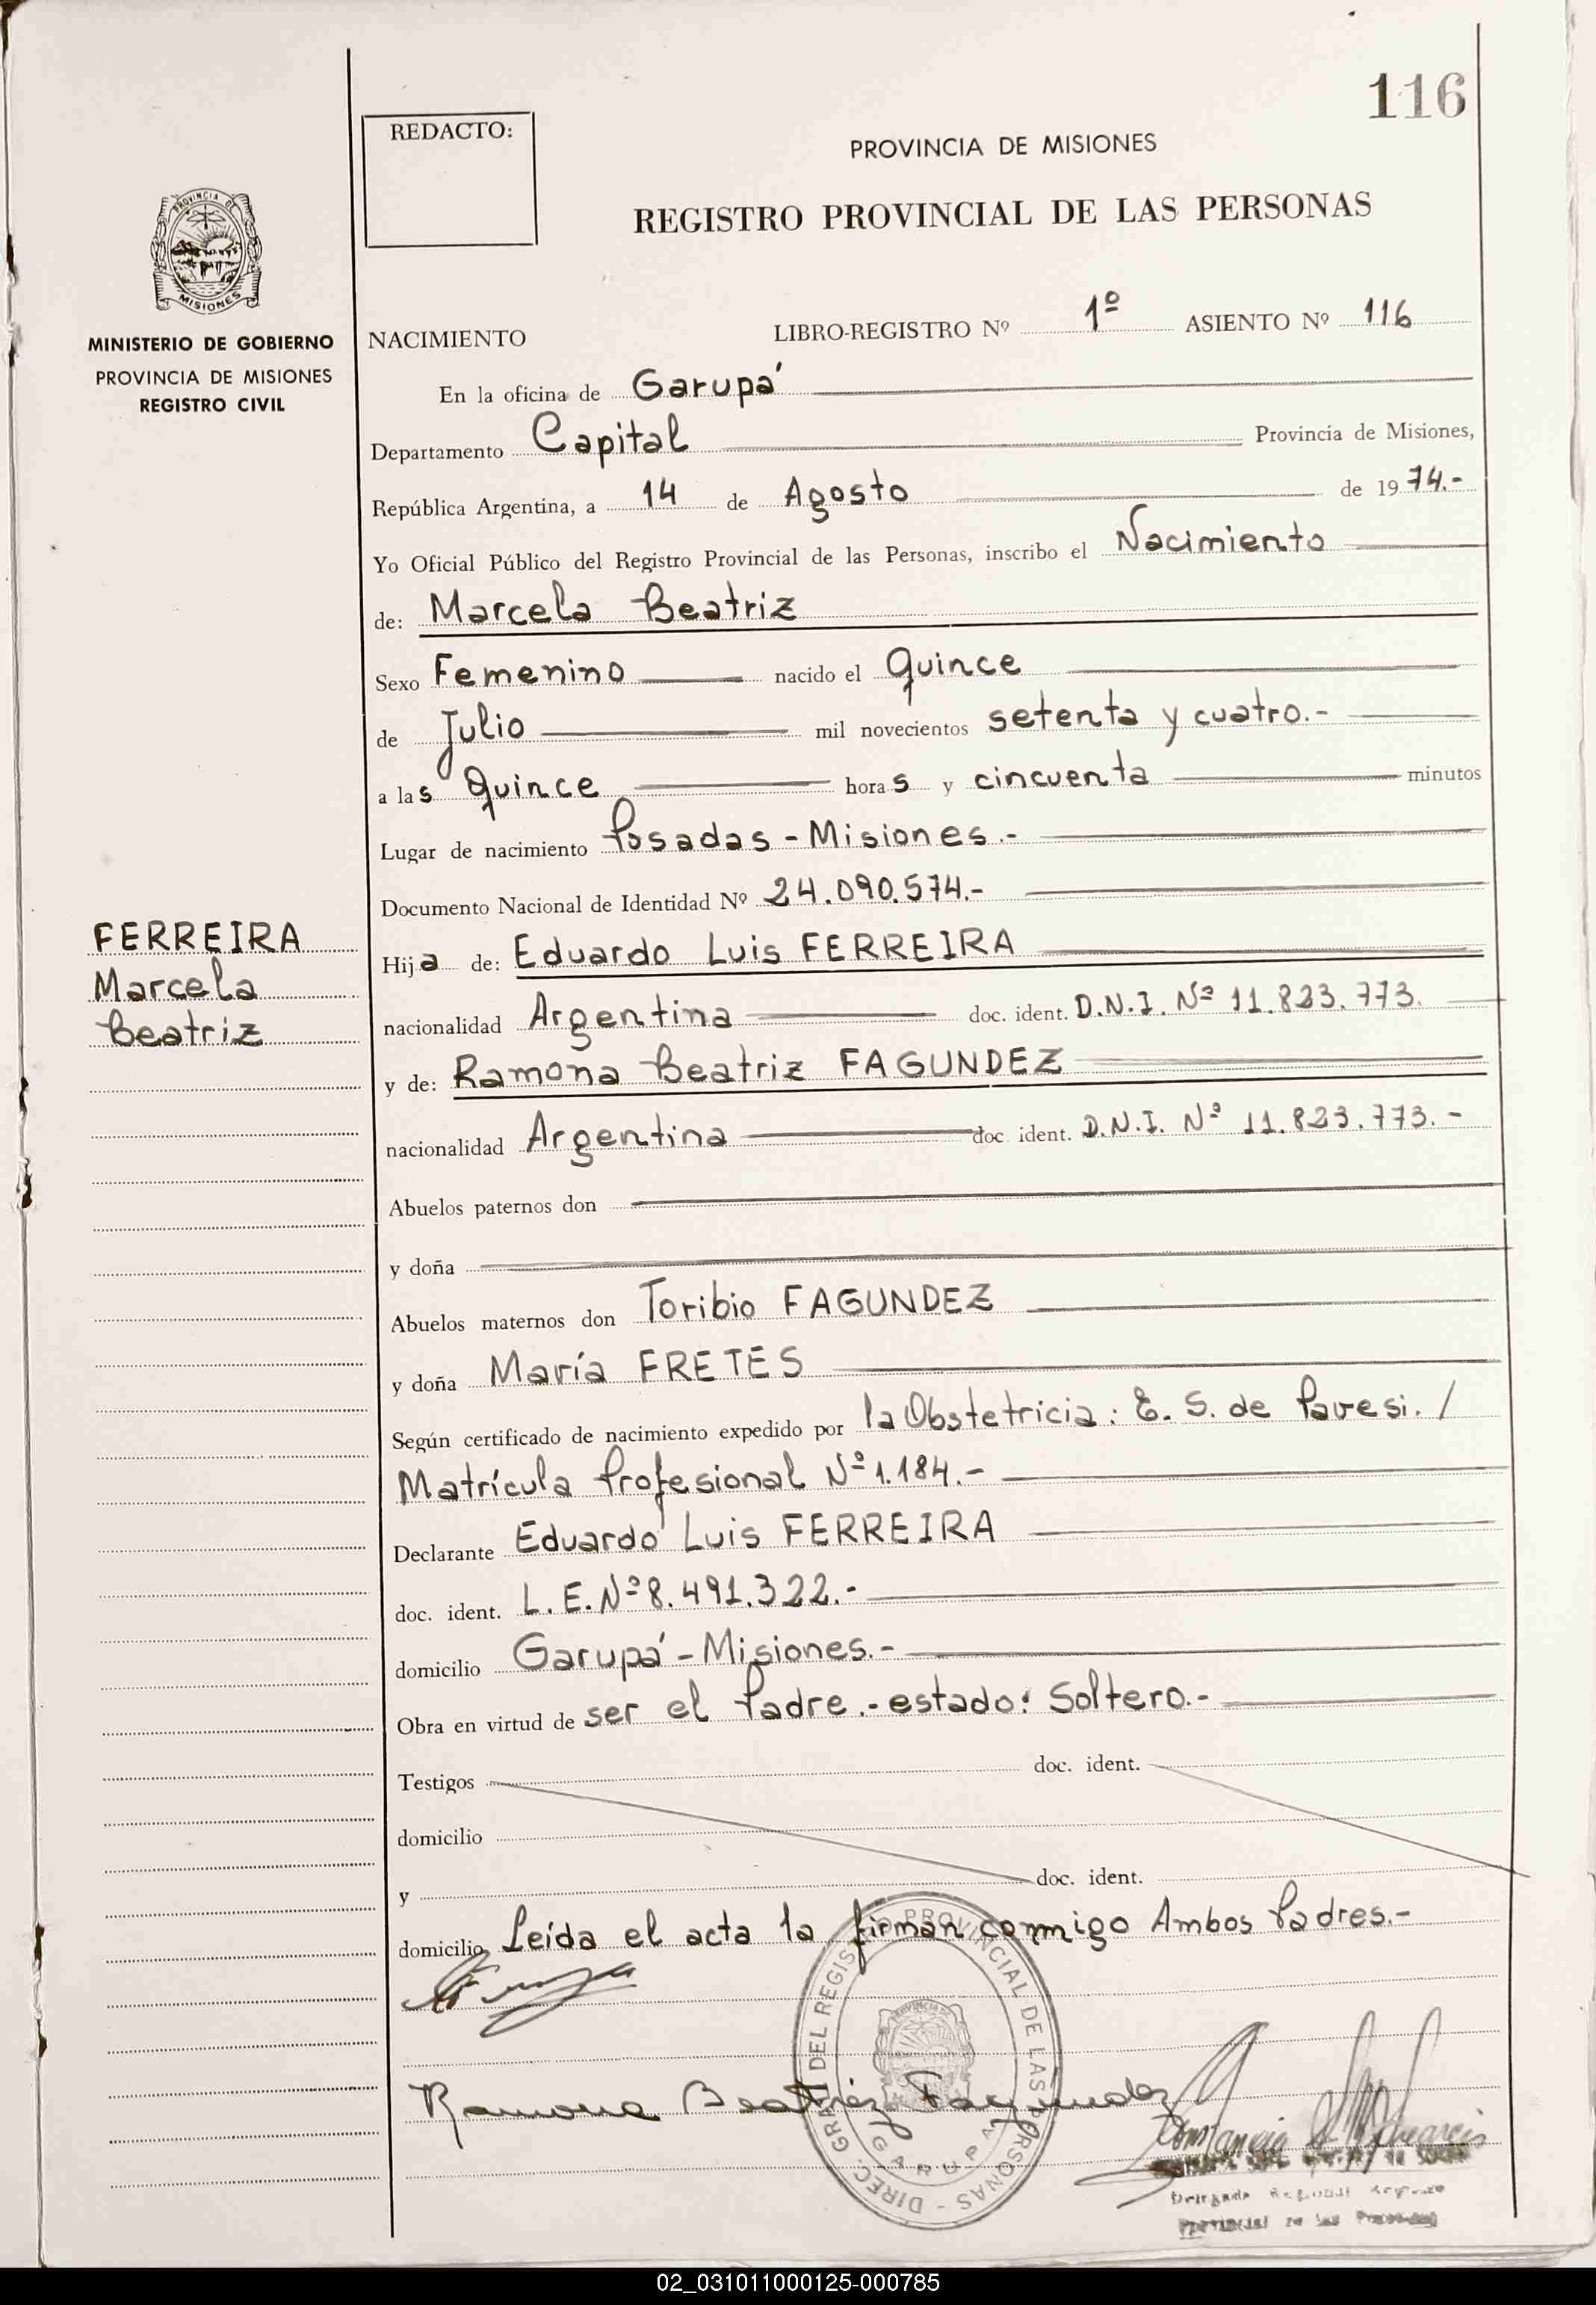 116
REDACTO:
PROVINCIA DE MISIONES
REGISTRO PROVINCIAL DE LAS PERSONAS
PROVINCIA DE
MISIONES
MINISTERIO DE GOBIERNO
PROVINCIA DE MISIONES
REGISTRO CIVIL
NACIMIENTO LIBRO-REGISTRO Nº 1º ASIENTO Nº 116
En la oficina de Garupá
Departamento Capital Provincia de Misiones,
República Argentina, a 14 de Agosto de 1974.-
Yo Oficial Público del Registro Provincial de las Personas, inscribo el Nacimiento
de: Marcela Beatriz
Sexo Femenino nacido el Quince
de Julio mil novecientos setenta y cuatro.-
a las Quince horas y cincuenta minutos
Lugar de nacimiento Posadas - Misiones.-
Documento Nacional de Identidad Nº 24.090.574.-
FERREIRA
Marcela
Beatriz
Hija de: Eduardo Luis FERREIRA
nacionalidad Argentina doc. ident. D.N.I. Nº 11.823.773.
y de: Ramona Beatriz FAGUNDEZ
nacionalidad Argentina doc. ident. D.N.I. Nº 11.823.773.-
Abuelos paternos don
y doña
Abuelos maternos don Toribio FAGUNDEZ
y doña María FRETES
Según certificado de nacimiento expedido por la Obstetricia: E. S. de Pavesi. /
Matrícula Profesional Nº 1.184.-
Declarante Eduardo Luis FERREIRA
doc. ident. L.E. Nº 8.491.322.-
domicilio Garupá - Misiones.-
Obra en virtud de ser el Padre.- estado: Soltero.-
Testigos doc. ident.
domicilio
y doc. ident.
domicilio Leída el acta la firman conmigo Ambos Padres.-
Ramona Beatriz Fagundez
DIREC. GRAL DEL REGISTRO PROVINCIAL DE LAS PERSONAS -
GARUPA
Constancia
02_031011000125-000785